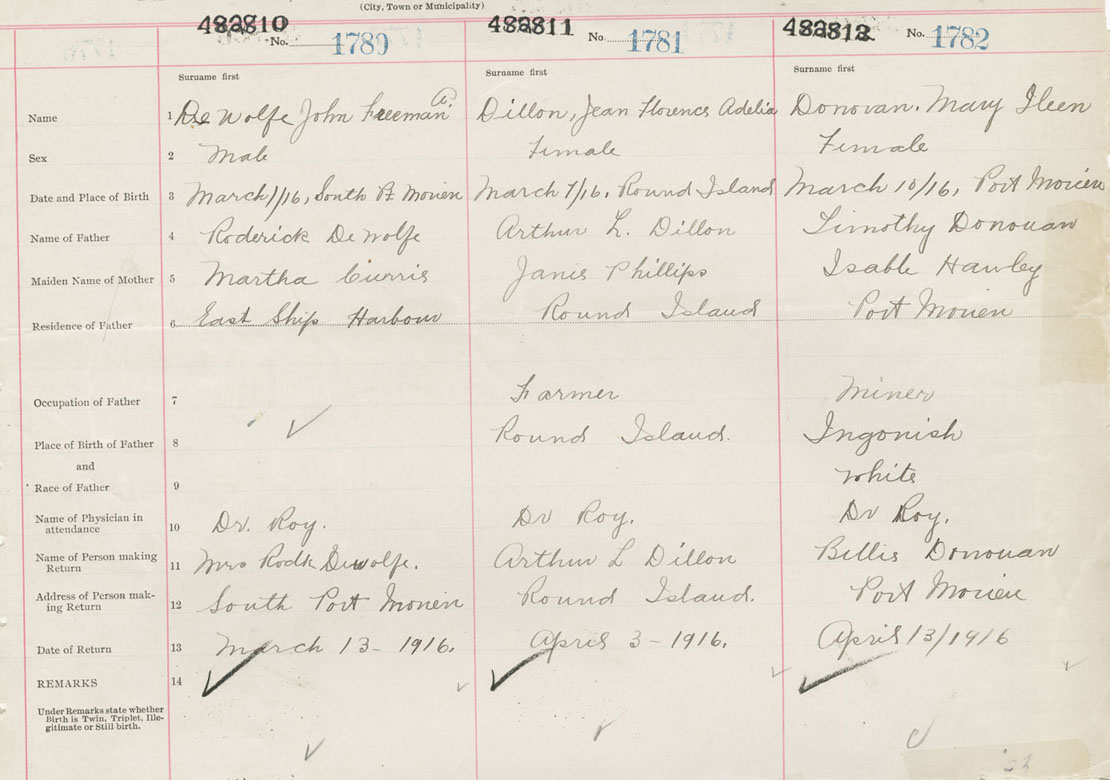 (City, Town or Municipality)
482810 482811 482812
No. 1780 No. 1781 No. 1782
Surname first Surname first Surname first
Name 1 De Wolfe, John Freeman A. Dillon, Jean Florence Adelia Donovan. Mary Ileen
Sex 2 Male Female Female
Date and Place of Birth 3 March 1/16, South Pt Morien March 7/16, Round Island March 10/16, Port Morien
Name of Father 4 Roderick DeWolfe Arthur L. Dillon Timothy Donovan
Maiden Name of Mother 5 Martha Currie Janie Phillips Isable Hawley
Residence of Father 6 East Ship Harbour Round Island Port Morien
Occupation of Father 7 Farmer Miner
Place of Birth of Father 8 Round Island. Ingonish
and
Race of Father 9 White
Name of Physician in
attendance 10 Dr. Roy. Dr Roy. Dr Roy.
Name of Person making
Return 11 Mrs Rodk Dewolfe. Arthur L Dillon Billie Donovan
Address of Person mak-
ing Return 12 South Port Morien Round Island. Port Morien
Date of Return 13 March 13 - 1916. April 3 - 1916. April 13/1916
REMARKS 14
Under Remarks state whether
Birth is Twin, Triplet, Ille-
gitimate or Still birth.